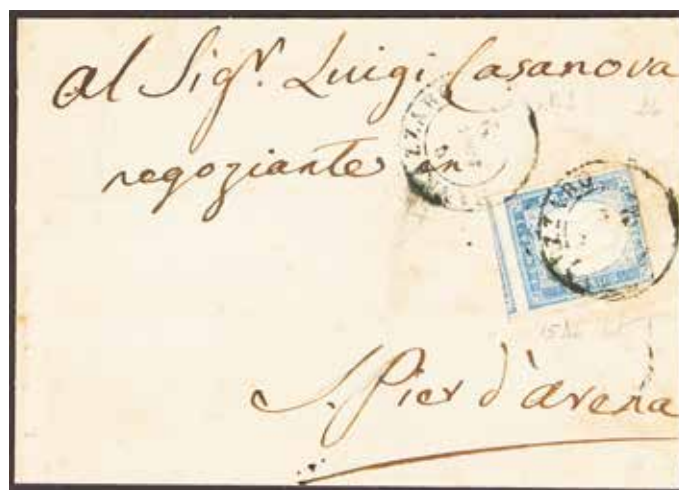 Al Sigr. Luigi Casanova
negoziante in
S. Pier d'arena